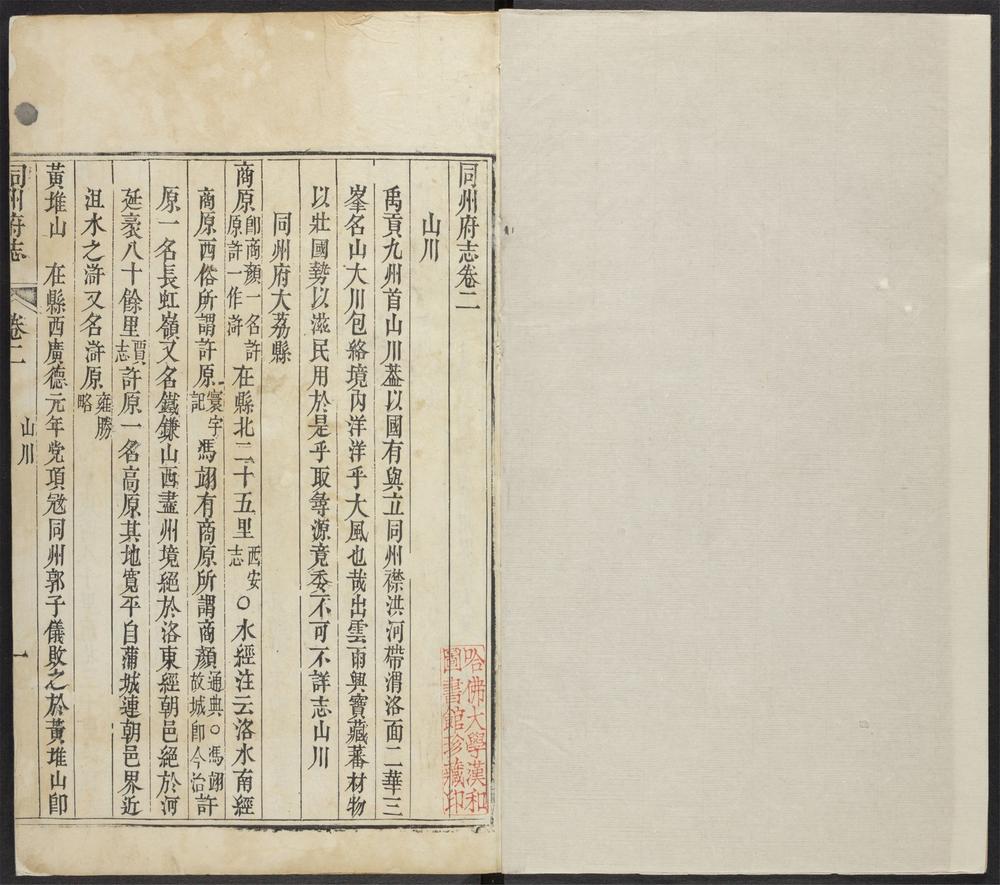 同州府志卷二
山川
禹貢九州首山川葢以國有與立同州襟洪河帶渭洛面二華三
峯名山大川包絡境內洋洋乎大風也哉出雲雨興寶藏蕃材物
以壯國勢以滋民用於是乎取㝷源竟委不可不詳志山川
同州府大荔縣
商原卽商顏一名許原許一作滸在縣北二十五里西安志○水經注云洛水南經
商原西俗所謂許原寰宇記馮翊有商原所謂商顏通典○馮翊故城卽今治許
原一名長虹嶺又名鐵鎌山西盡州境絕於洛東經朝邑絕於河
延袤八十餘里賈志許原一名高原其地寬平自蒲城連朝邑界近
沮水之滸又名滸原雍勝略
黃堆山　在縣西廣德元年党項寇同州郭子儀敗之於黃堆山卽
同州府志　卷二　山川　一
哈佛大學漢和
圖書館珍藏印